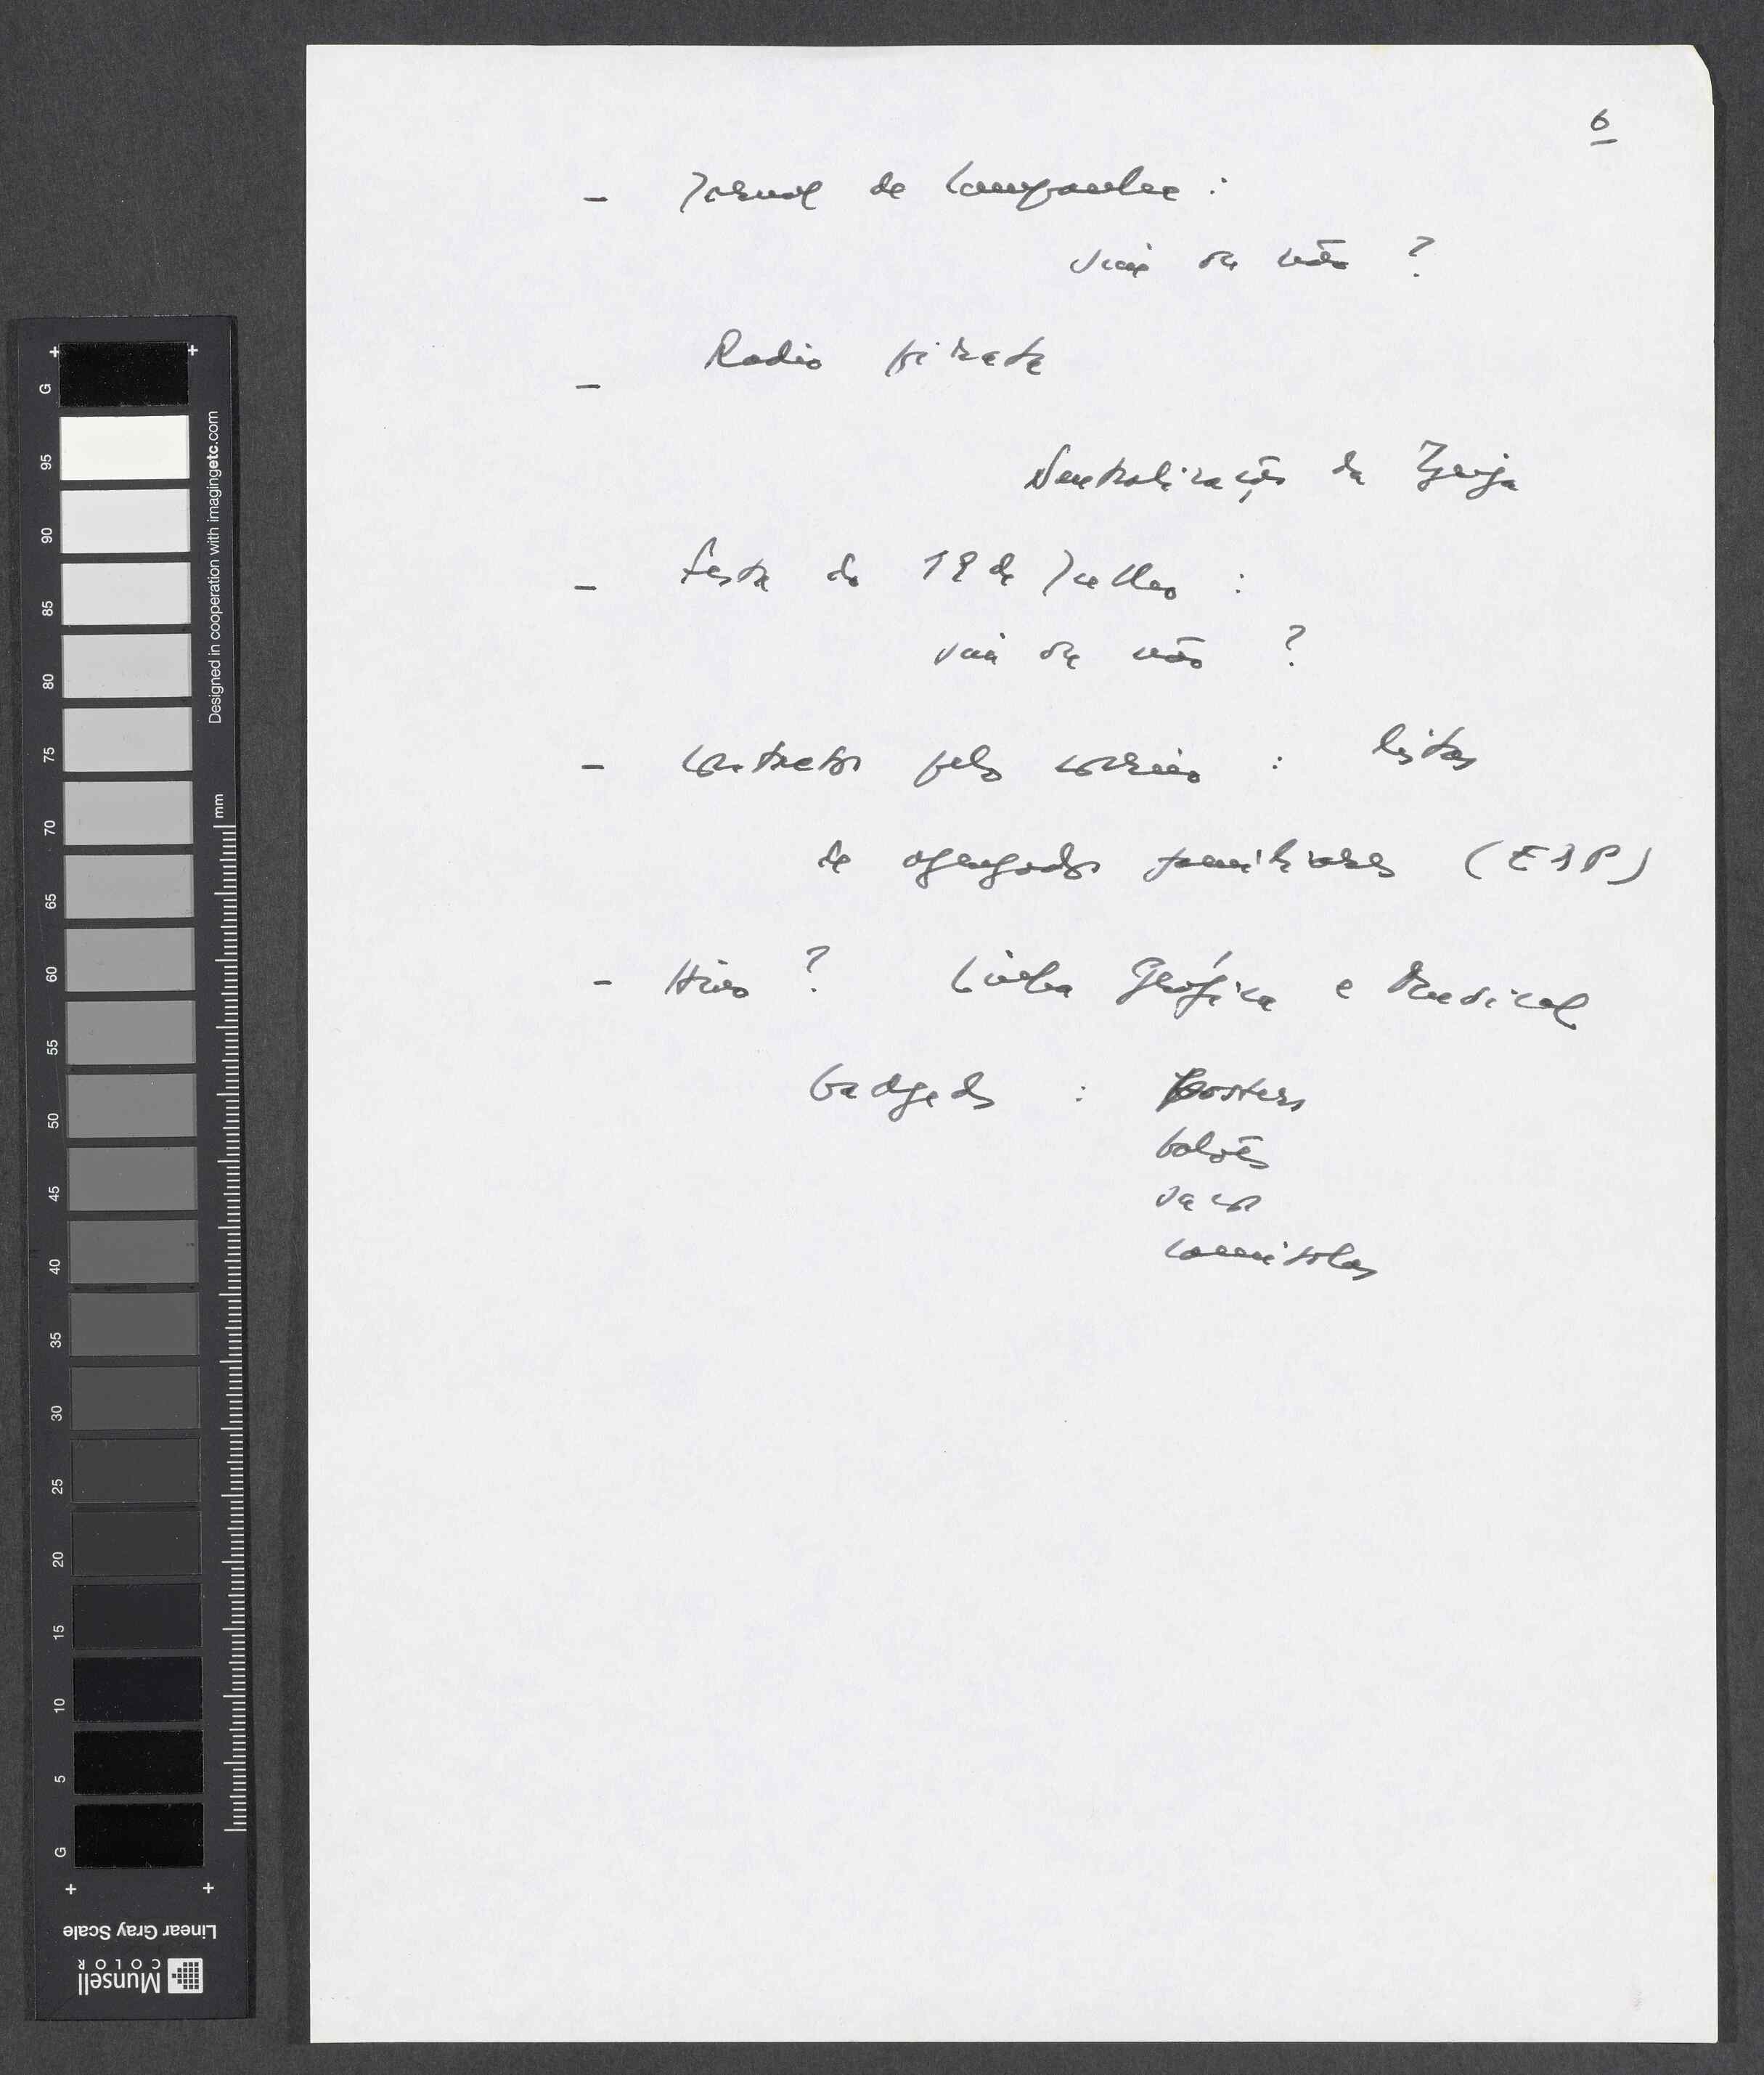 6
- Jornal de Campanha :
vai ou não ?
- Radio pirata
Neutralização da Igreja
- festa do 19 de Julho :
vai ou não ?
- contactos pelo correio : listas
de agregados familiares (ESP)
- Hino ? Linha Gráfica e Musical
Gadgeds : posters
balões
sacos
camisolas
G
95
90
85
80
75
70
65
60
55
50
45
40
35
30
25
20
15
10
5
G
mm
Designed in cooperation with imagingetc.com
Linear Gray Scale
Munsell
COLOR